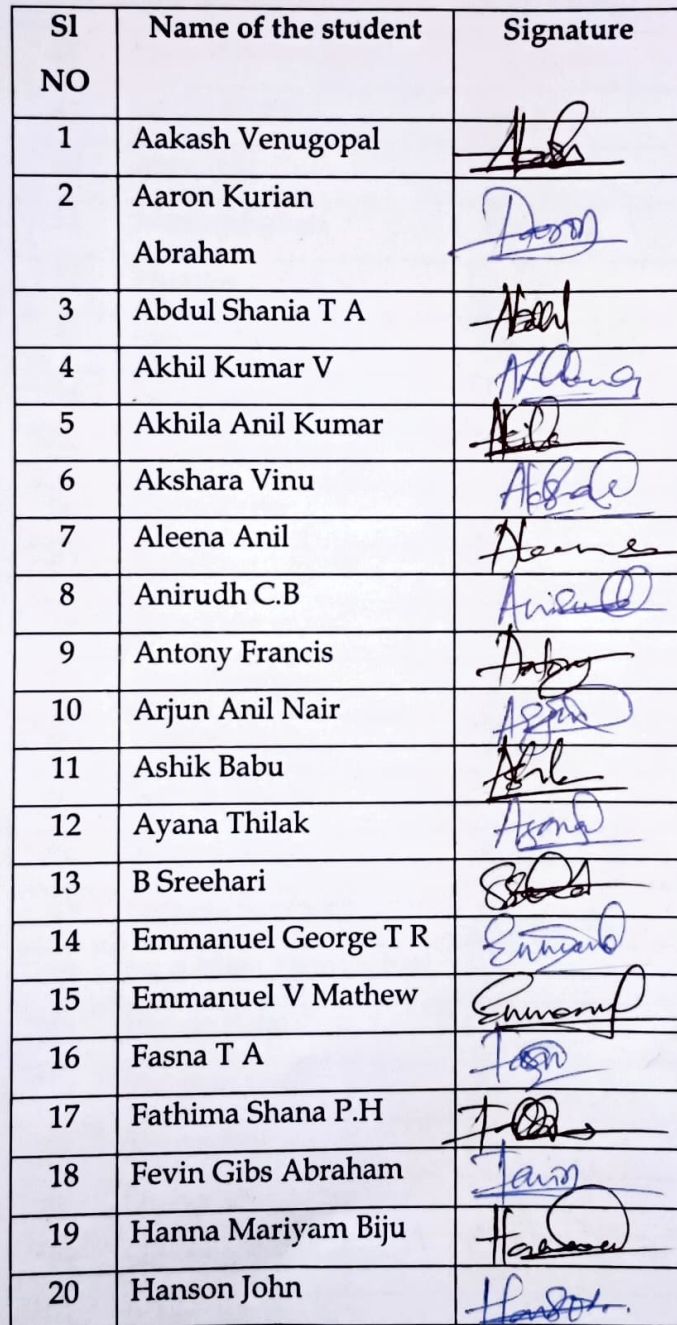 Sl NO Name of the student Signature
1 Aakash Venugopal
2 Aaron Kurian Abraham Aaron
3 Abdul Shania T A Abdul
4 Akhil Kumar V
5 Akhila Anil Kumar
6 Akshara Vinu
7 Aleena Anil Aleena
8 Anirudh C.B Anirudh
9 Antony Francis Antony
10 Arjun Anil Nair Arjun
11 Ashik Babu
12 Ayana Thilak Ayana
13 B Sreehari
14 Emmanuel George T R
15 Emmanuel V Mathew
16 Fasna T A
17 Fathima Shana P.H
18 Fevin Gibs Abraham Fevin
19 Hanna Mariyam Biju
20 Hanson John Hanson